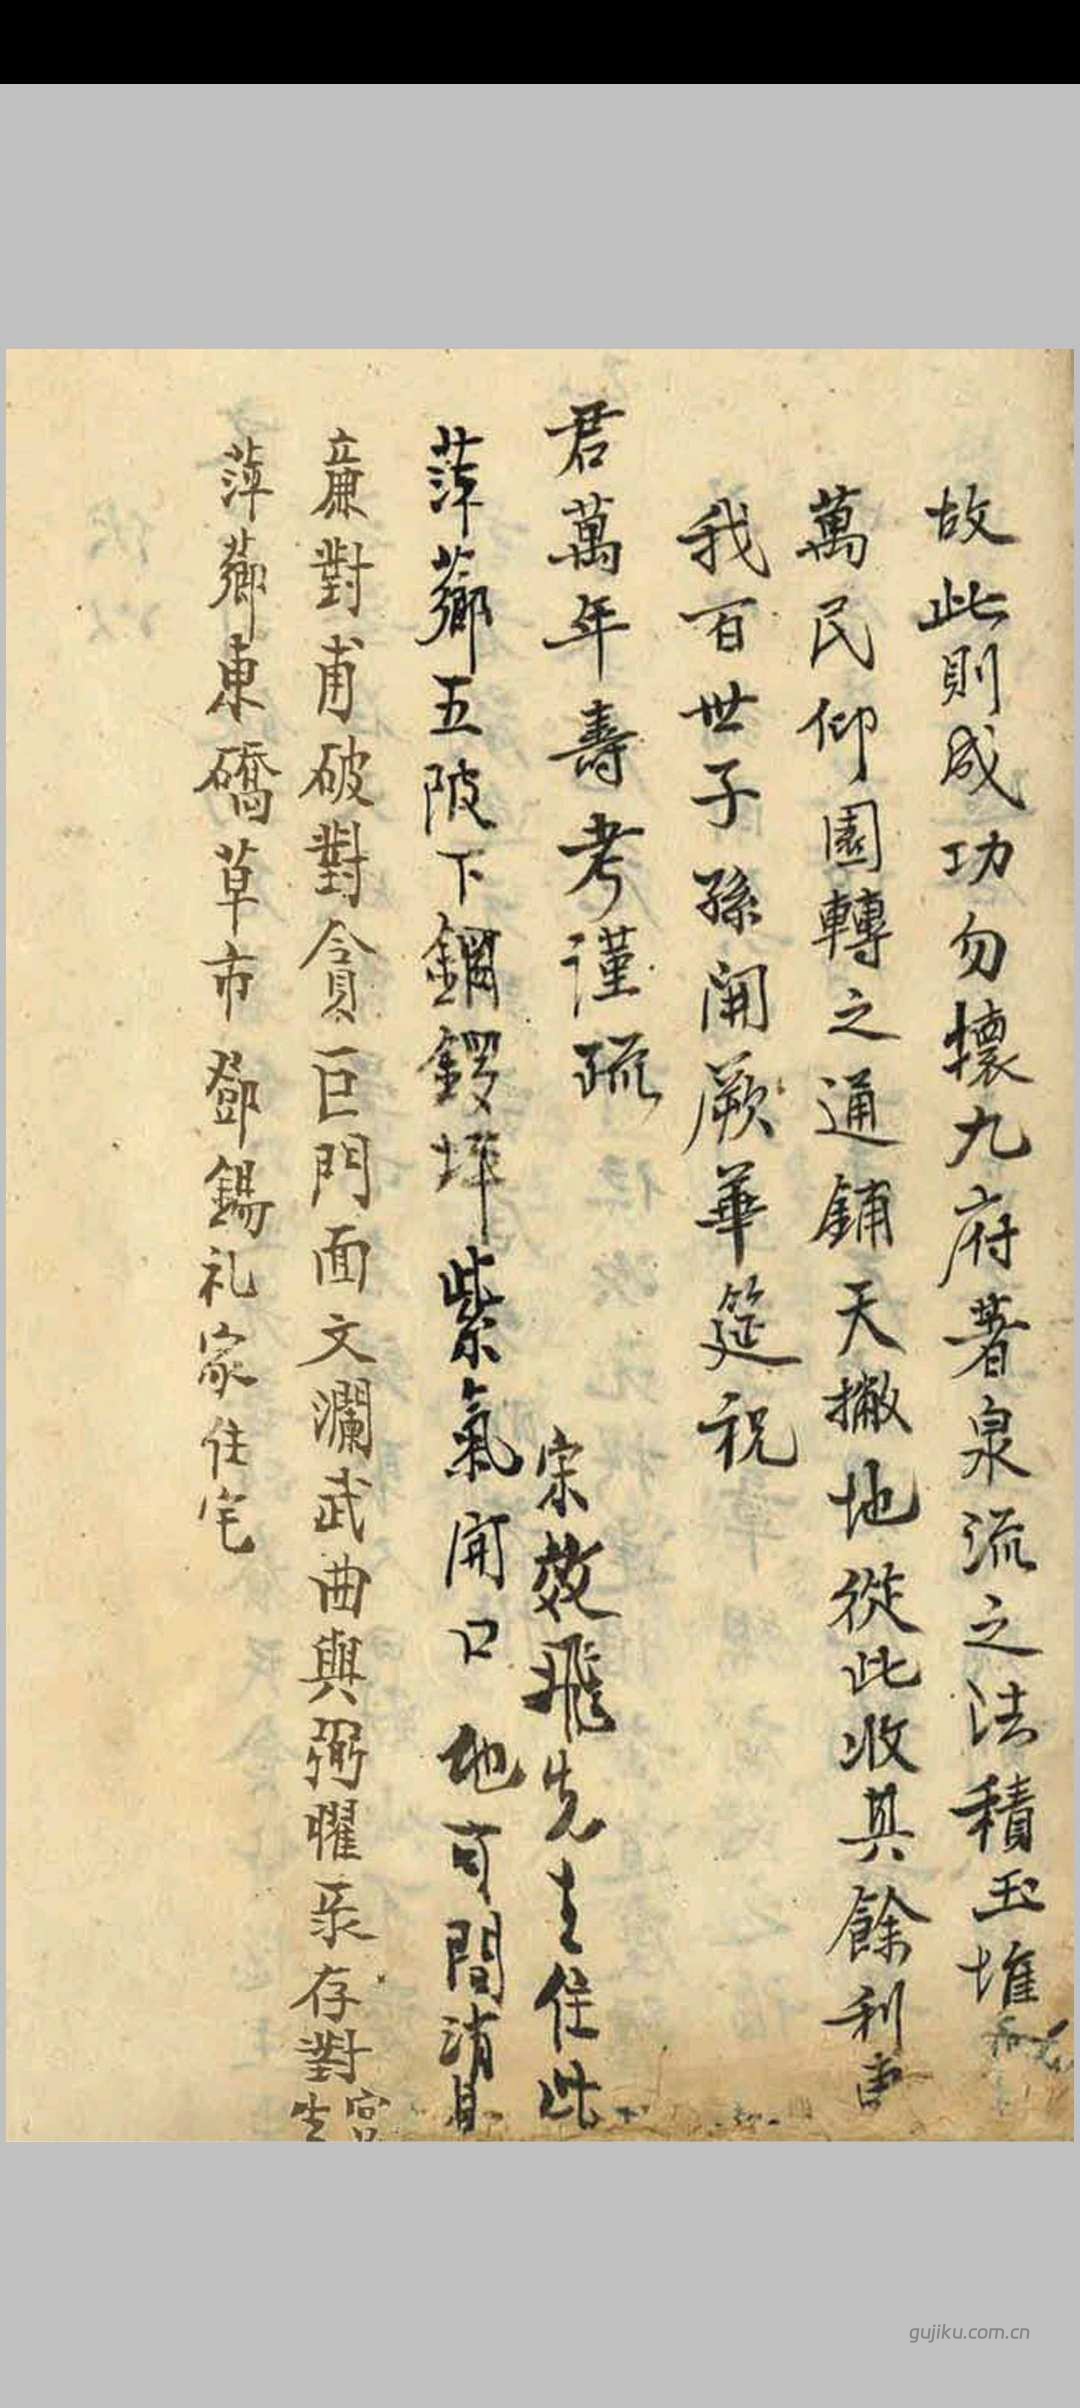 故此則成功勿壞九府著泉流之法積玉堆
萬民仰圜轉之通鋪天撇地從此收其餘利
我百世子孫開厥華筵祝
君萬年壽考謹疏
宋效飛先生住此
萍薌五陂下鍘鍔坪紫氣開口地可間消息
亷對甫破對貪巨門面文瀾武曲與弼耀豖存對宮生
萍薌東礄草市鄧錫礼家住宅
gujiku.com.cn